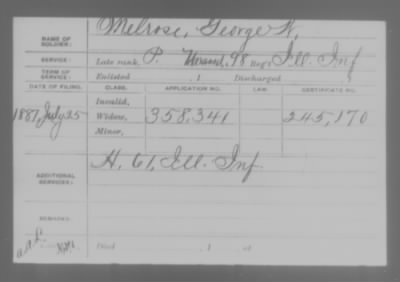 NAME OF SOLDIER: Melrose, George W,
SERVICE: Late rank, P. 98 Reg't Ill. Inf
TERM OF SERVICE: Enlisted , 1 Discharged , 1
DATE OF FILING. CLASS. APPLICATION NO. LAW. CERTIFICATE NO.
Invalid,
1887, July 25 Widow, 358,341 245,170
Minor,
ADDITIONAL SERVICES: H. 61, Ill. Inf.
REMARKS:
Died , 1 , at